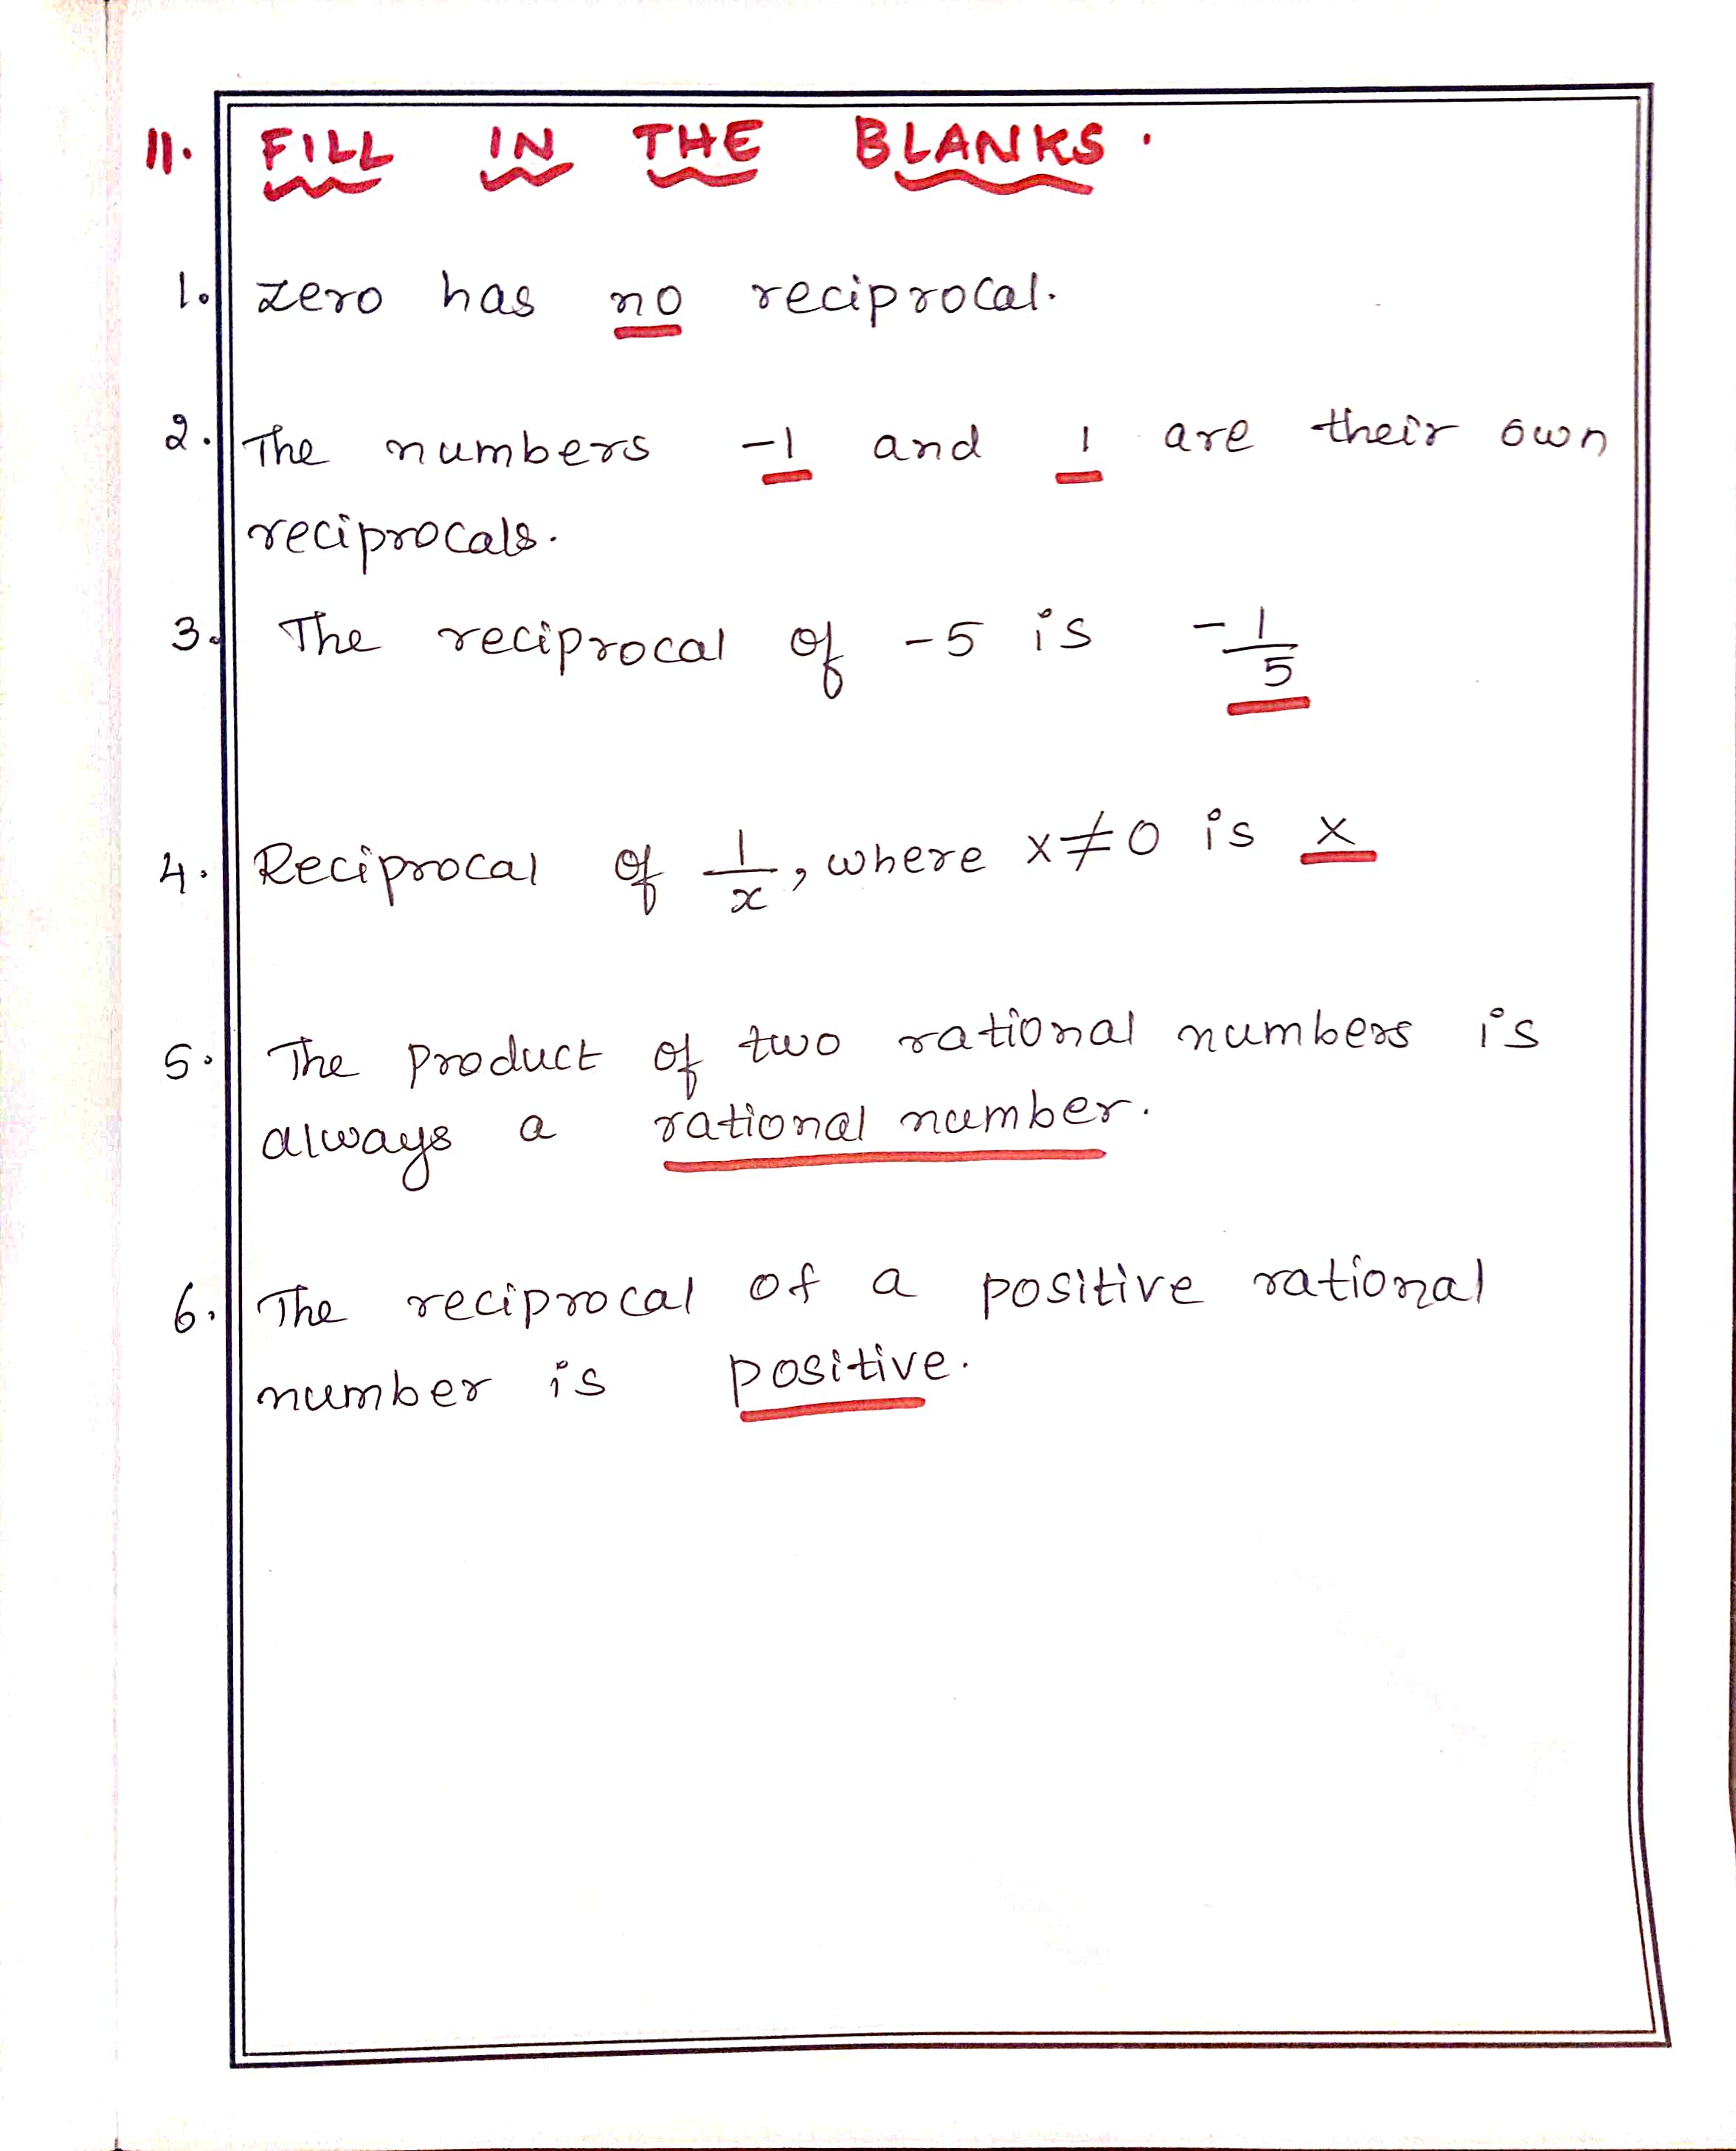 11. FILL IN THE BLANKS.
1. zero has no reciprocal.
2. The numbers -1 and 1 are their own
reciprocals.
3. The reciprocal of -5 is -1/5
4. Reciprocal of 1/x, where x≠0 is x
5. The product of two rational numbers is
always a rational number.
6. The reciprocal of a positive rational
number is positive.